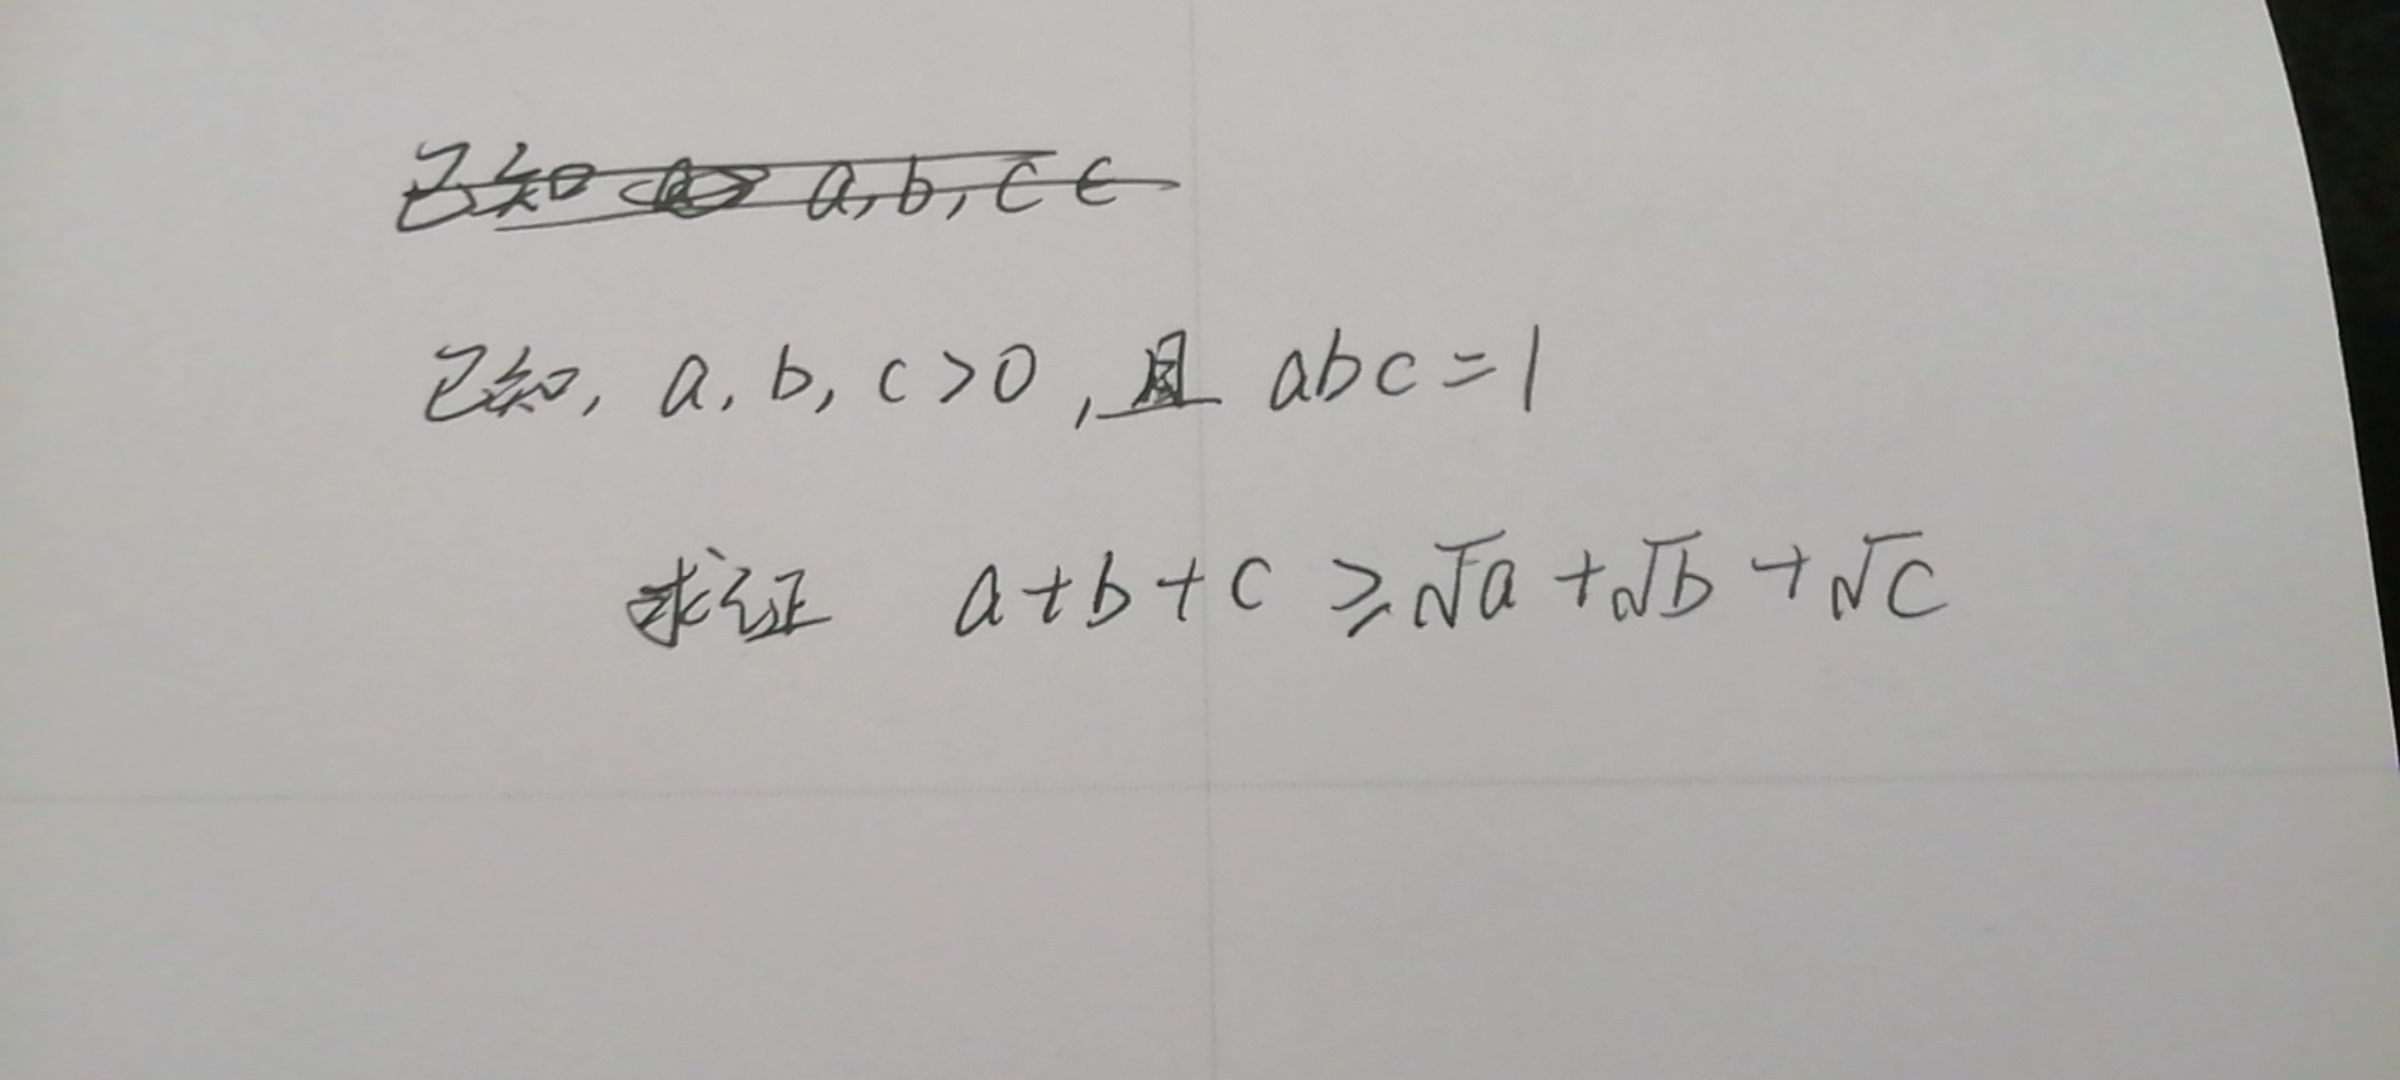 已知 a, b, c ∈
已知, a, b, c > 0, 且 abc = 1
求证 a + b + c ≥ √a + √b + √c